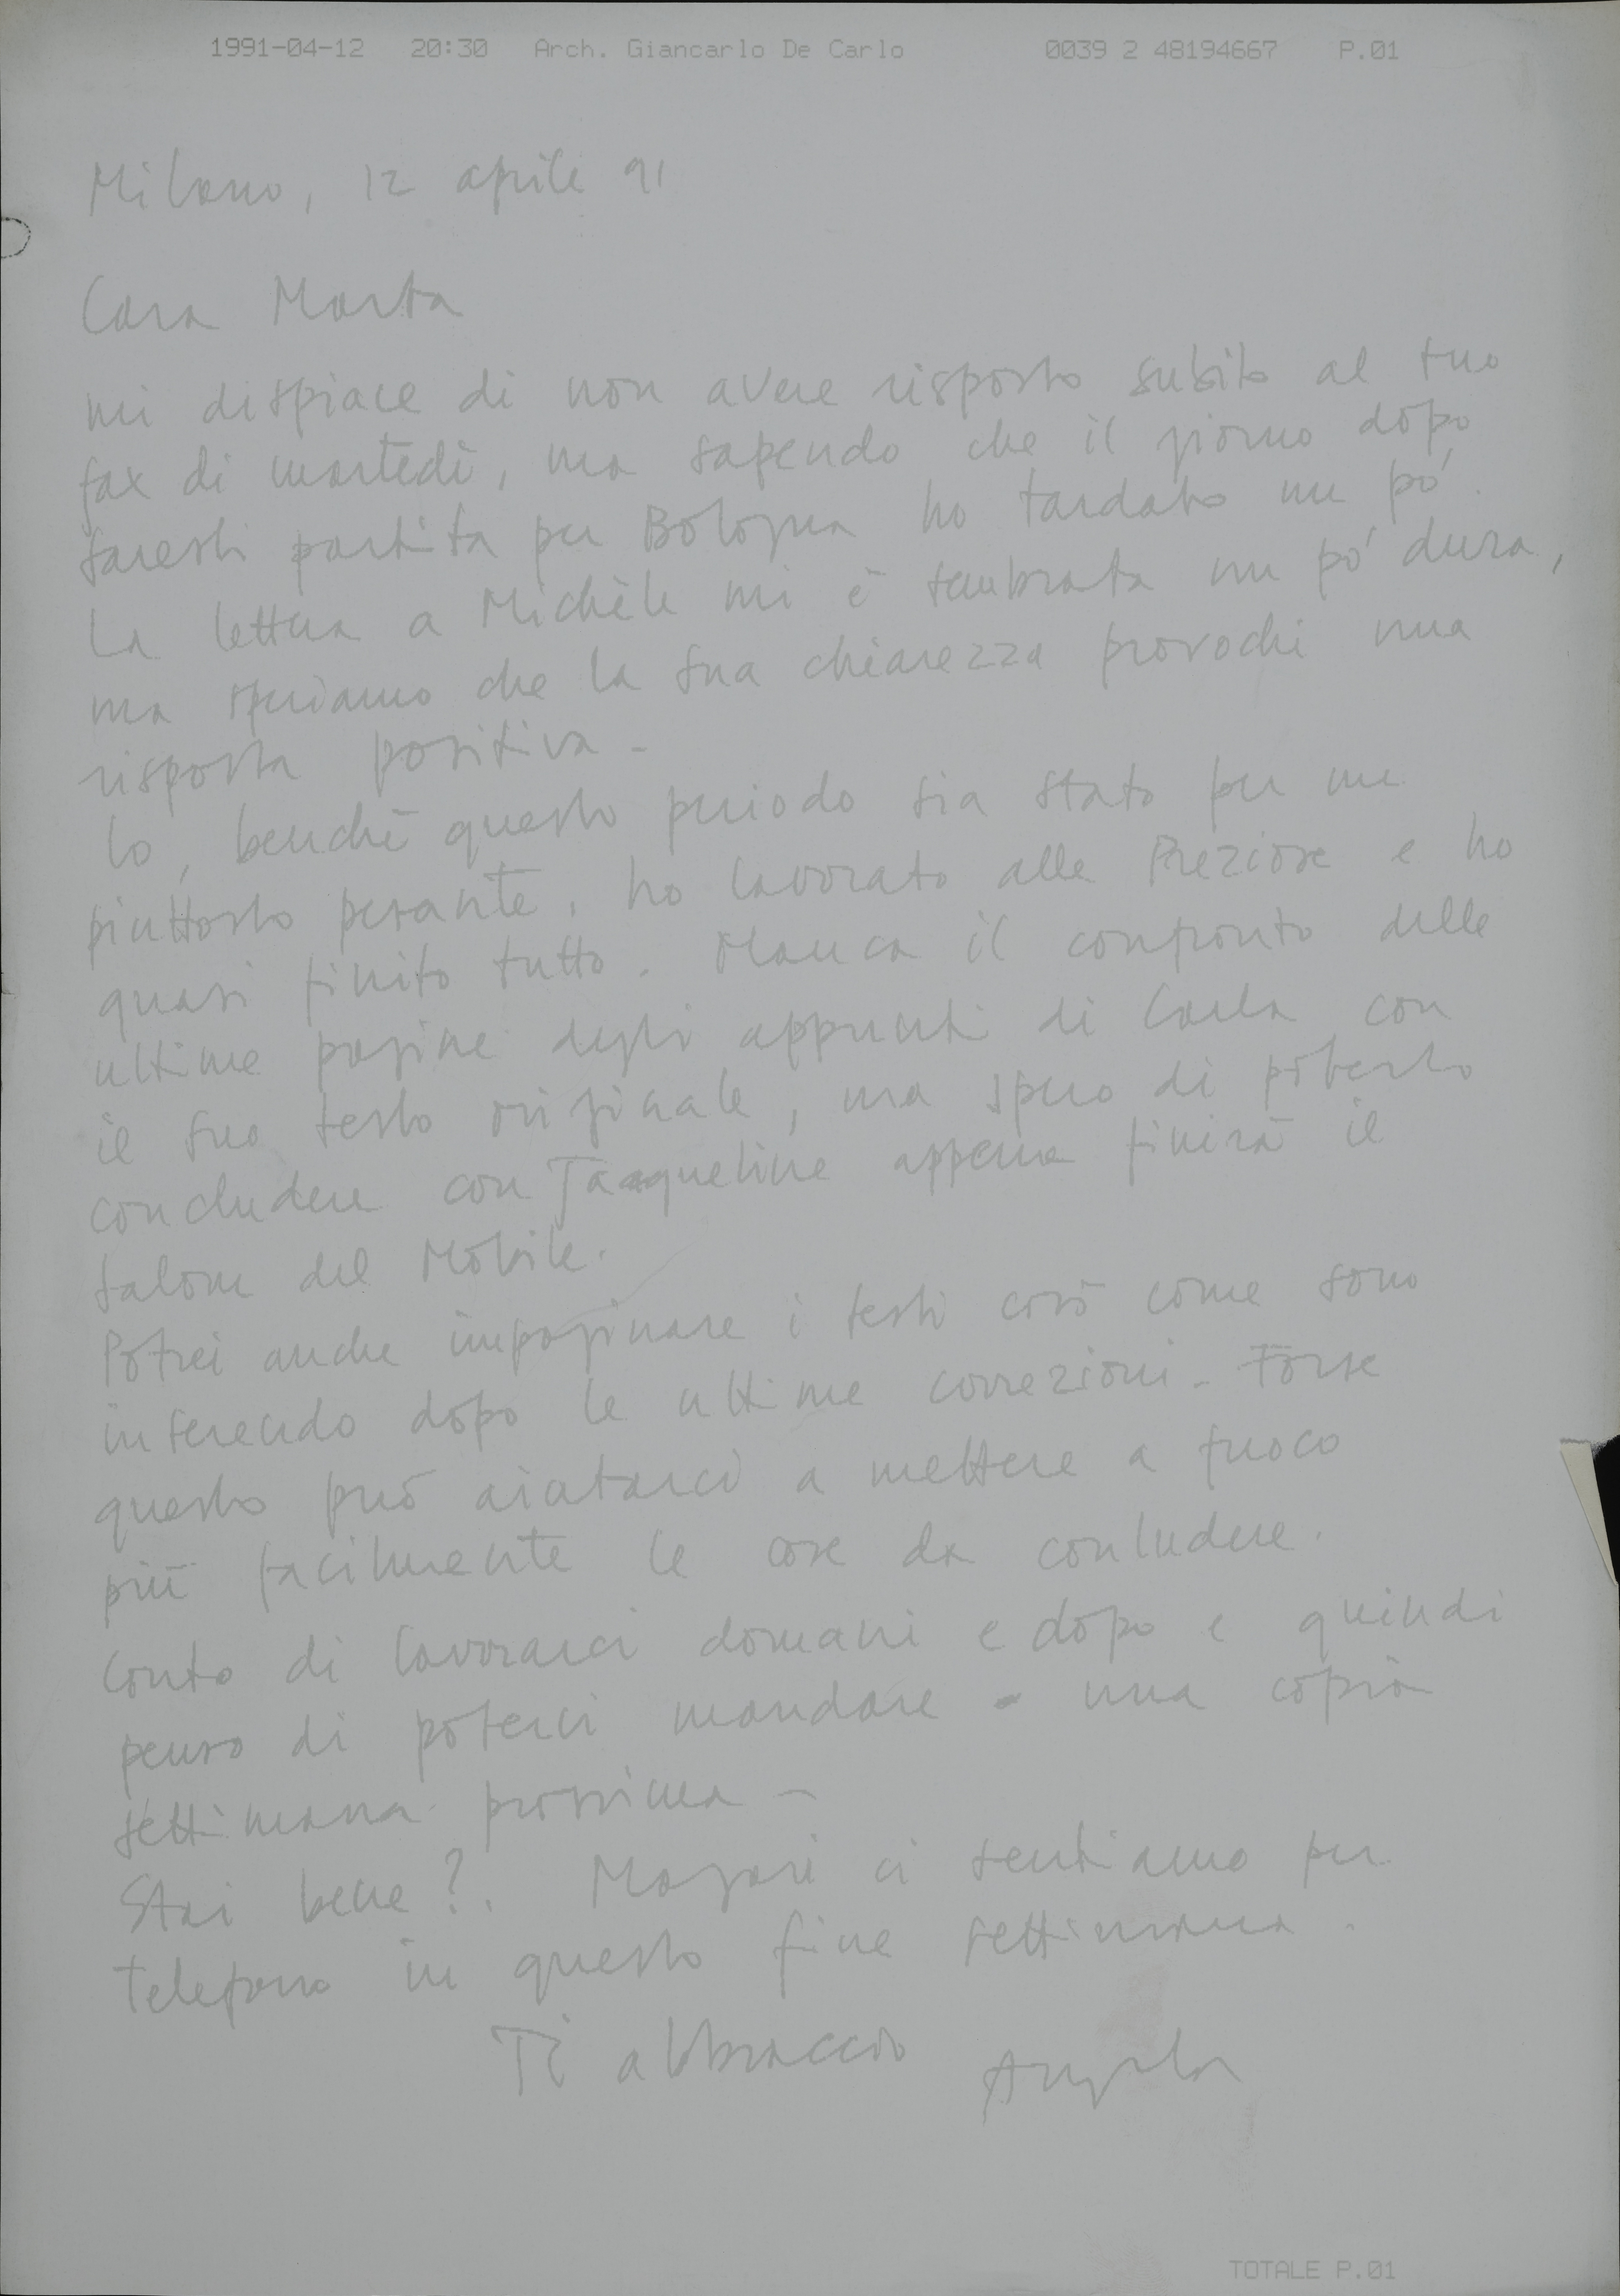 1991-04-12 20:30 Arch. Giancarlo De Carlo 0039 2 48194667 P.01
Milano, 12 aprile 91
Cara Marta
mi dispiace di non avere risposto subito al tuo
fax di martedì, ma sapendo che il giorno dopo
saresti partita per Bologna ho tardato un pó.
La lettera a Michèle mi è sembrata un pó dura,
ma speriamo che la sua chiarezza provochi una
risposta positiva -
Io, benchè questo periodo sia stato per me
piuttosto pesante, ho lavorato alle Preziose e ho
quasi finito tutto. Manca il confronto delle
ultime pagine degli appunti di Carla con
il suo testo originale, ma spero di poterlo
concludere con Jaqueline appena finirà il
salone del Mobile.
Potrei anche impaginare i testi così come sono
inserendo dopo le ultime correzioni - Forse
questo può aiutarci a mettere a fuoco
più facilmente le cose da conludere.
Conto di lavorarci domani e dopo e quindi
penso di poterci mandare una copia
settimana prossima -
Stai bene?. Magari ci sentiamo per
telefono in questo fine settimana.
Ti abbraccio Angela
TOTALE P.01